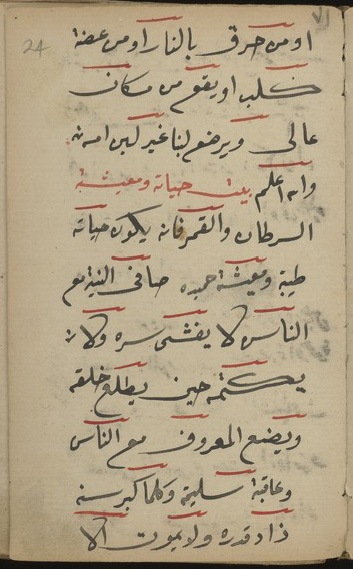 ٧١
24
او من حرق بالنار او من عضة
كلب او يقع من مكان
عالى ويرضع لبنا غير لبن امه
والله اعلم بيت حياته ومعيشته
السرطان والقمر فانه يكون حياته
طيبة ومعيشة حميده صافى النية مع
الناس لا يفشى سره ولا
يكتمه حين يطلع خلقه
ويضع المعروف مع الناس
وعاقبة سليمة وكلما كبر سنه
زاد قدره ولا يموت الا